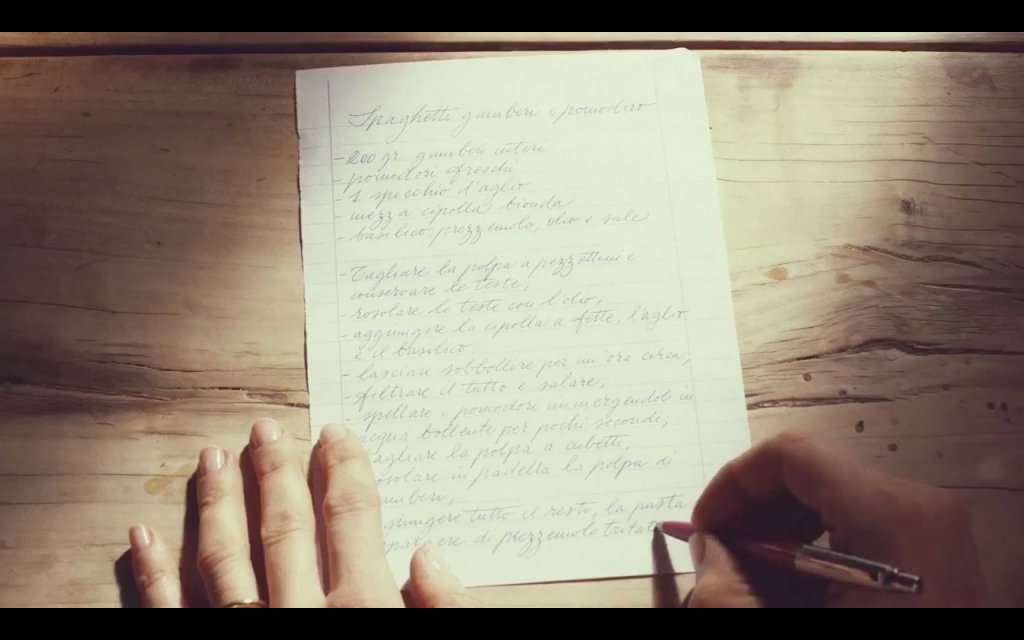 Spaghetti gamberi e pomodoro
- 200 gr. gamberi interi
- pomodori freschi
- 1 spicchio d'aglio
- mezza cipolla bionda
- basilico, prezzemolo, olio e sale
- Tagliare la polpa a pezzettini e
conservare le teste;
- rosolare le teste con l'olio,
- aggiungere la cipolla a fette, l'aglio
e il basilico,
- lasciare sobbollire per un'ora circa;
- filtrare il tutto e salare;
- spellare i pomodori immergendoli in
acqua bollente per pochi secondi;
tagliare la polpa a cubetti,
rosolare in padella la polpa di
gamberi,
giungere tutto il resto, la pasta
spargere di prezzemolo tritato